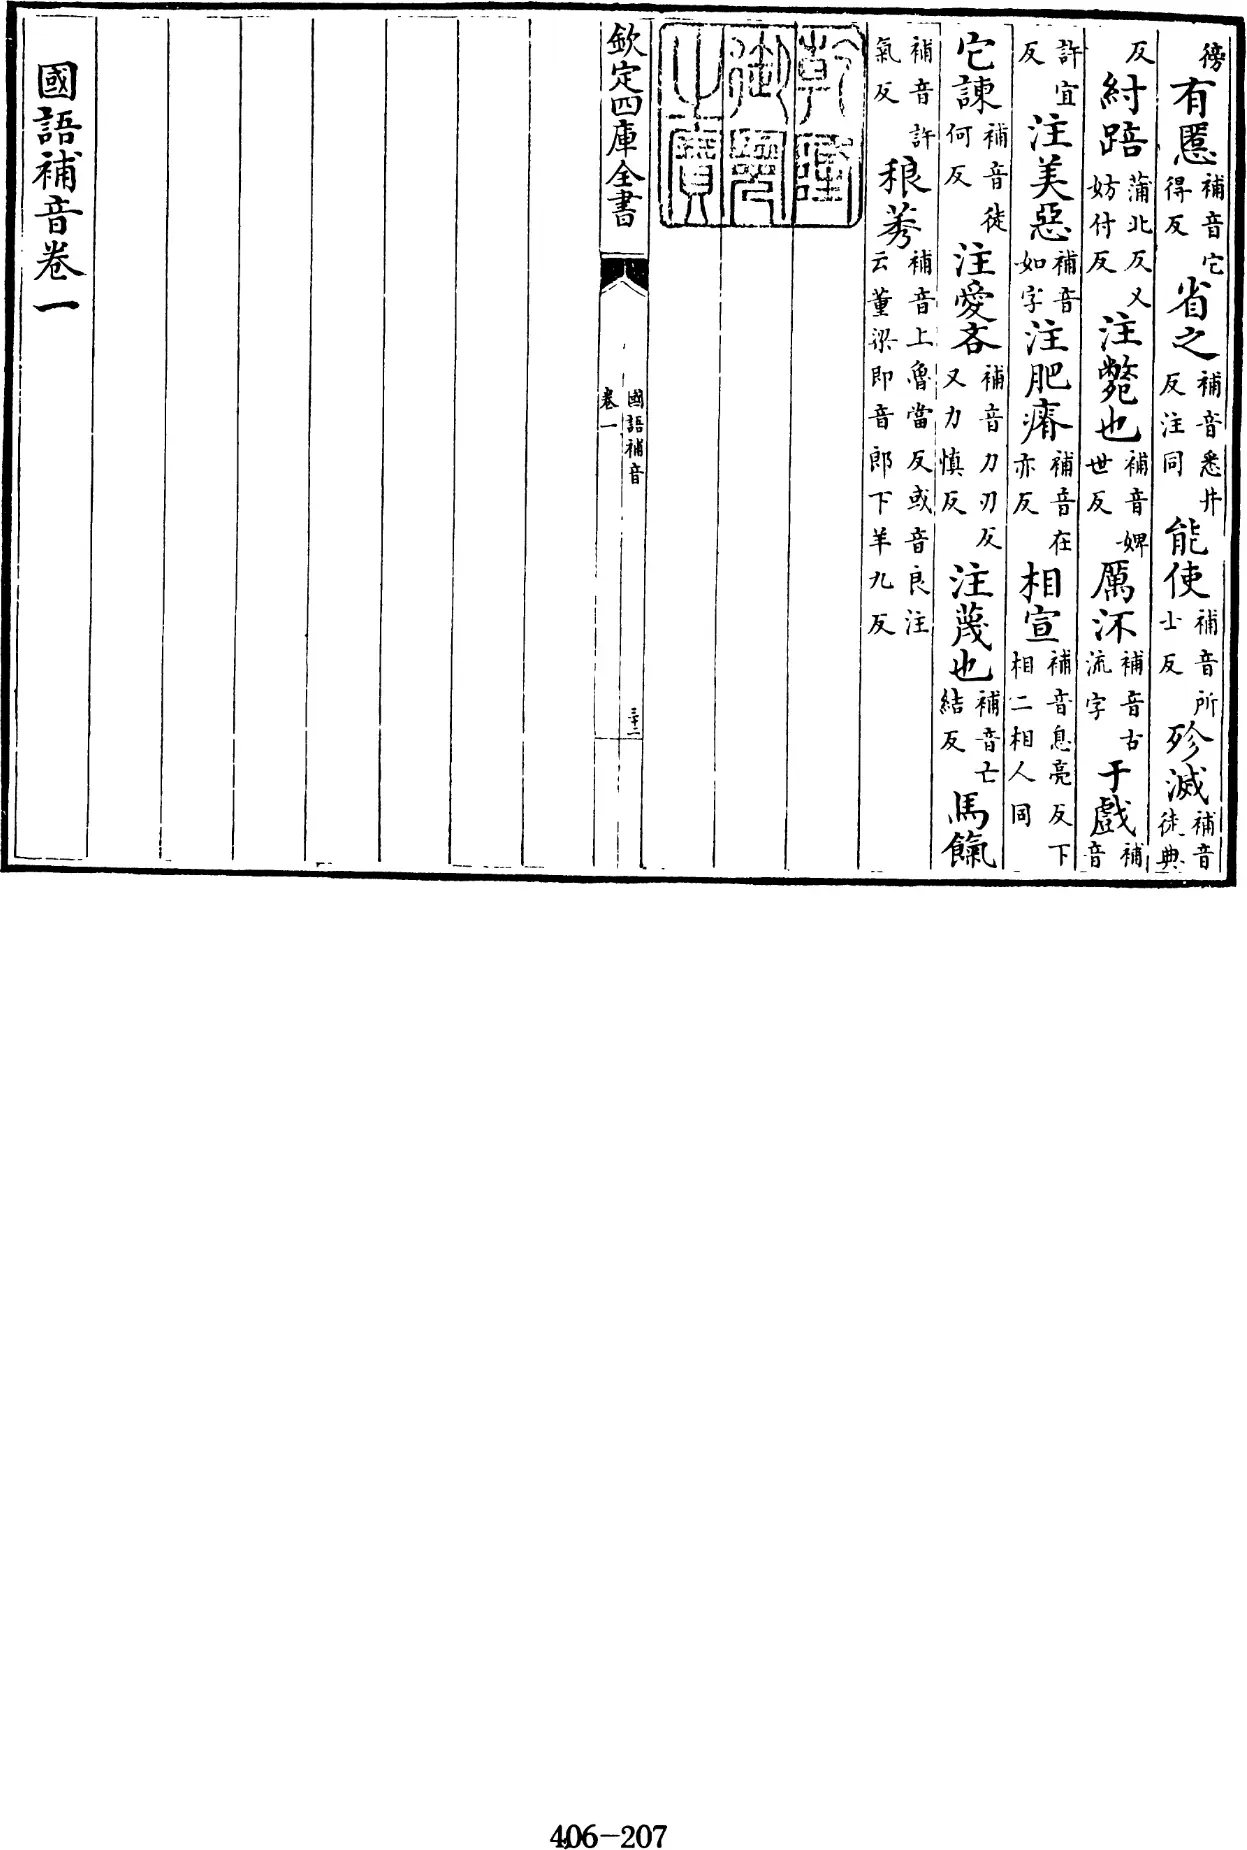 徬有慝補音它得反省之補音悉井反注同能使補音所士反殄滅補音徒典
反紂踣蒲北反又妨付反注斃也補音婢世反厲㳅補音古流字于戲補音
許宜反注美惡補音如字注肥瘠補音在亦反相宣補音息亮反下相二相人同
它諫補音徒何反注愛吝補音力刃反又力慎反注蔑也補音亡結反馬餼
補音許氣反稂莠補音上魯當反或音良注云董梁即音郎下羊九反
乾隆御覽之寶
欽定四庫全書
國語補音
卷一
三十二
國語補音卷一
406-207